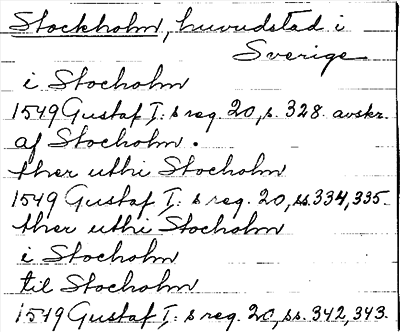 Stockholm, huvudstad i
Sverige
i Stocholm
1549 Gustaf I: s reg. 20, s. 328. avskr.
af Stocholm.
ther uthi Stocholm
1549 Gustaf I: s reg. 20, ss. 334, 335.
ther uthi Stocholm
i Stocholm
til Stocholm
1549 Gustaf I: s reg. 20, ss. 342, 343.